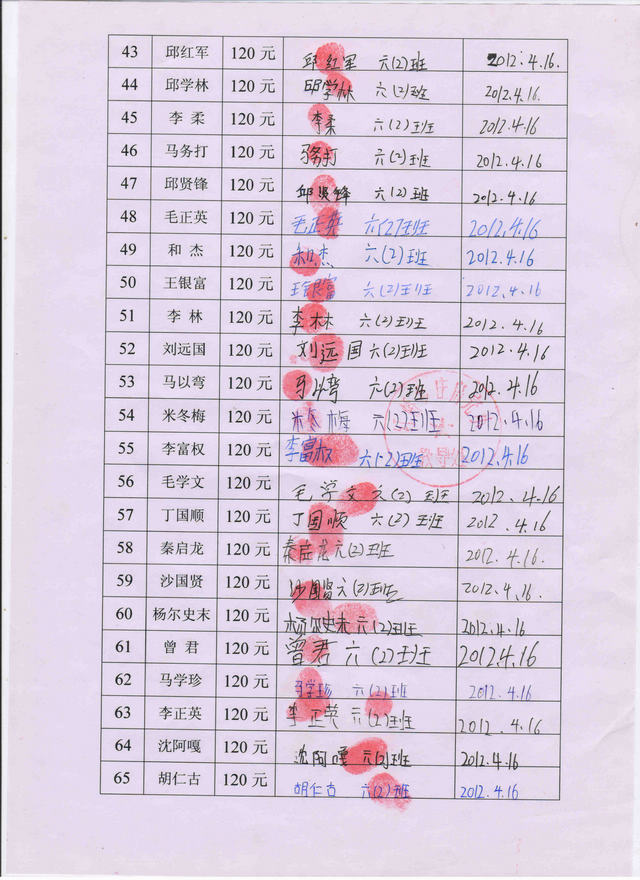 43 邱红军 120 元 邱红军 六(2)班 2012.4.16.
44 邱学林 120 元 邱学林 六(2)班 2012.4.16.
45 李 柔 120 元 李柔 六(2)班 2012.4.16
46 马务打 120 元 马务打 六(2)班 2012.4.16
47 邱贤锋 120 元 邱贤锋 六(2)班 2012.4.16
48 毛正英 120 元 毛正英 六(2)班 2012.4.16
49 和 杰 120 元 和杰 六(2)班 2012.4.16
50 王银富 120 元 王银富 六(2)班 2012.4.16
51 李 林 120 元 李林 六(2)班 2012.4.16
52 刘远国 120 元 刘远国 六(2)班 2012.4.16
53 马以弯 120 元 马以弯 六(2)班 2012.4.16
54 米冬梅 120 元 米冬梅 六(2)班 2012.4.16
55 李富权 120 元 李富权 六(2)班 2012.4.16
56 毛学文 120 元 毛学文 六(2)班 2012.4.16
57 丁国顺 120 元 丁国顺 六(2)班 2012.4.16
58 秦启龙 120 元 秦启龙 六(2)班 2012.4.16.
59 沙国贤 120 元 沙国贤 六(2)班 2012.4.16.
60 杨尔史末 120 元 杨尔史末 六(2)班 2012.4.16
61 曾 君 120 元 曾君 六(2)班 2012.4.16
62 马学珍 120 元 马学珍 六(2)班 2012.4.16
63 李正英 120 元 李正英 六(2)班 2012.4.16
64 沈阿嘎 120 元 沈阿嘎 六(2)班 2012.4.16
65 胡仁古 120 元 胡仁古 六(2)班 2012.4.16